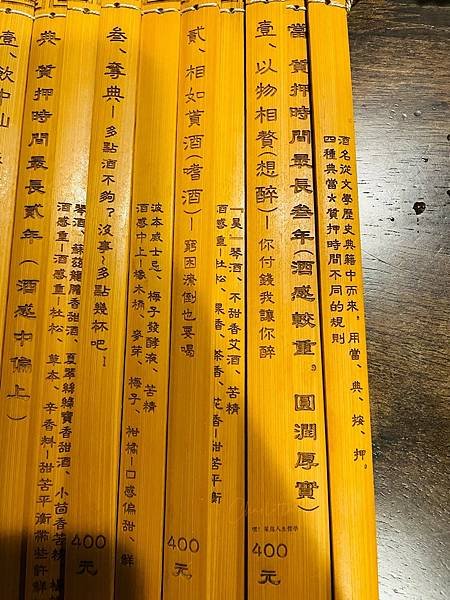 酒名從文學歷史典籍中而來，用當、典、按、押。
四種典當☆質押時間不同的規則
當 質押時間最長叁年（酒感較重。圓潤厚實）
壹、以物相贅（想醉）—你付錢我讓你醉
嘿！葉島人生哲學
400元
『昊』琴酒、不甜香艾酒、苦精
酒感重—杜松、果香、茶香、花香—甜苦平衡
貳、相如貰酒（嗜酒）—窮困潦倒也要喝
400元
波本威士忌、梅子發酵液、苦精
酒感中上—橡木桶、麥芽、梅子、柑橘—口感偏甜、鮮
叁、奪典—多點酒不夠？沒事~多點幾杯吧~
400元
琴酒、蘇茲龍膽香甜酒、夏翠絲綠寶香甜酒、小茴香苦精、
酒感重—杜松、草本、辛香料—甜苦平衡帶些許鮮
典 質押時間最長貳年（酒感中偏上）
壹、飲中山